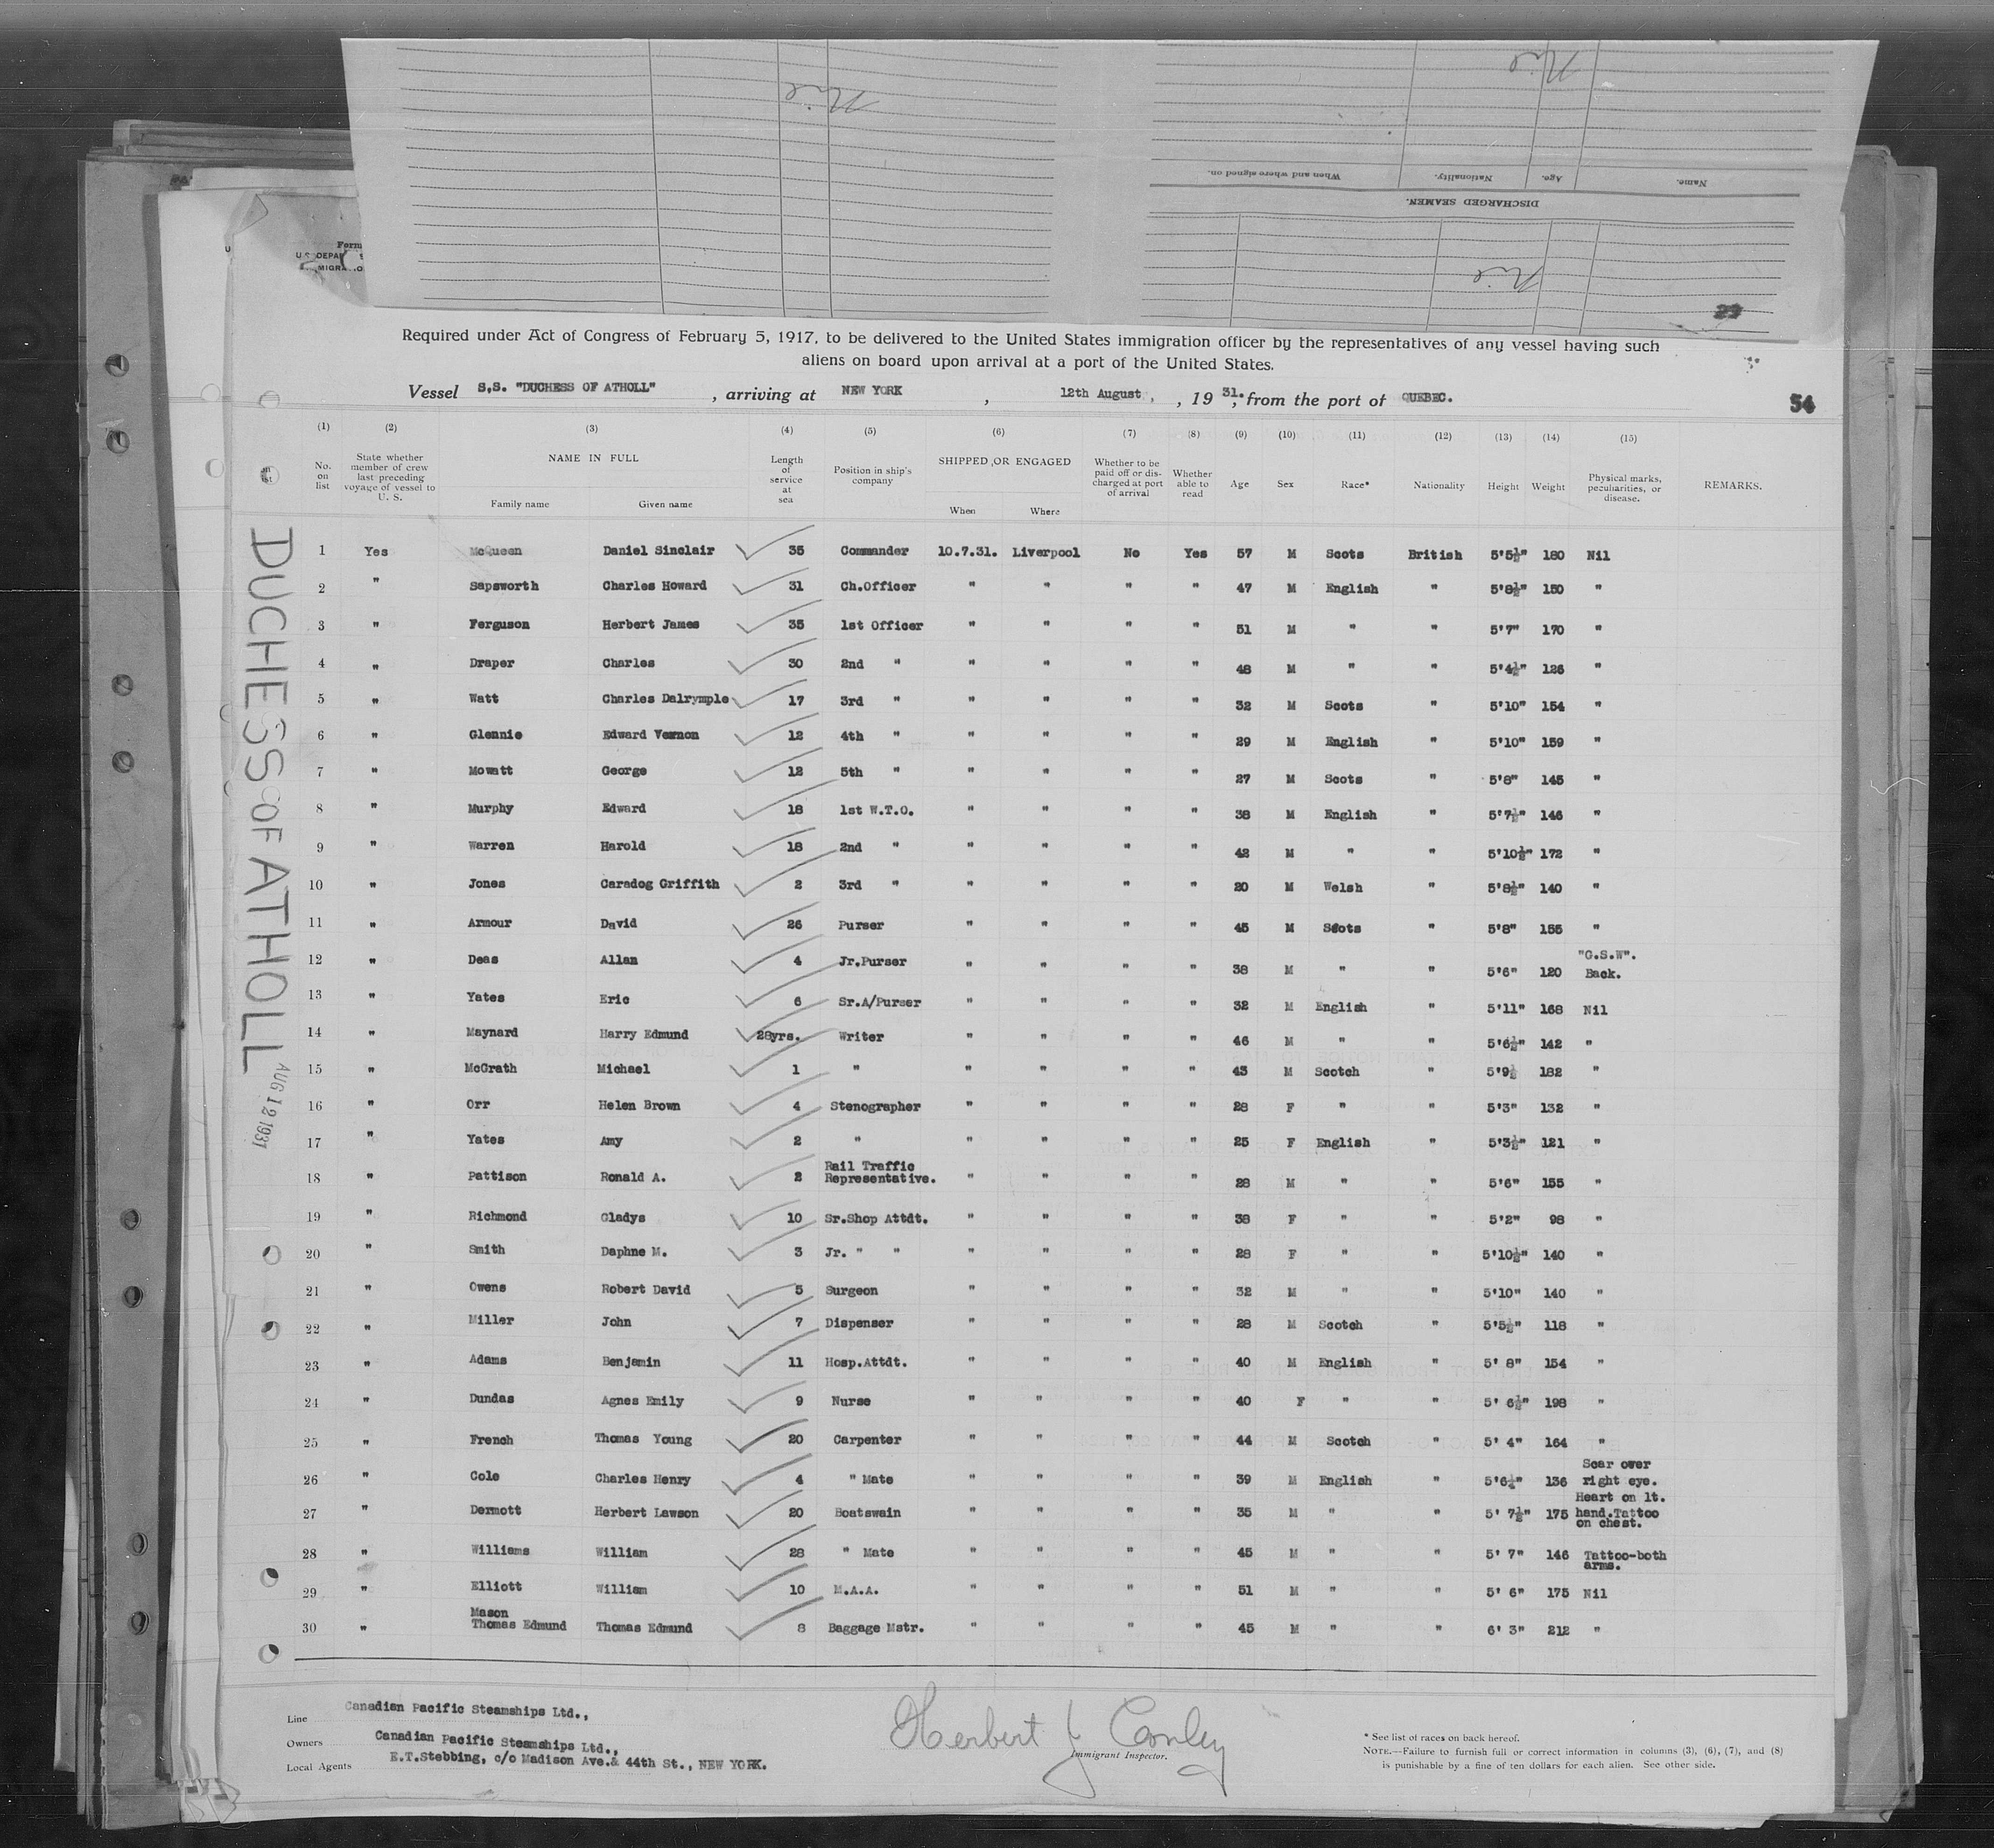 Nil
Nil
Name.
Age.
Nationality.
When and where signed on.
DISCHARGED SEAMEN.
Nil
29
Form
U.S. DEPA
Required under Act of Congress of February 5, 1917, to be delivered to the United States immigration officer by the representatives of any vessel having such
aliens on board upon arrival at a port of the United States.
Vessel S.S. "DUCHESS OF ATHOLL" , arriving at NEW YORK , 12th August, , 19 31. , from the port of QUEBEC.
54
(1) (2) (3) (4) (5) (6) (7) (8) (9) (10) (11) (12) (13) (14) (15)
No. on list State whether member of crew last preceding voyage of vessel to U. S. NAME IN FULL Family name Given name Length of service at sea Position in ship's company SHIPPED OR ENGAGED When Where Whether to be paid off or discharged at port of arrival Whether able to read Age Sex Race* Nationality Height Weight Physical marks, peculiarities, or disease. REMARKS.
1 Yes McQueen Daniel Sinclair 35 Commander 10.7.31. Liverpool No Yes 57 M Scots British 5'5½" 180 Nil
2 " Sapsworth Charles Howard 31 Ch.Officer " " " " 47 M English " 5'8½" 150 "
3 " Ferguson Herbert James 35 1st Officer " " " " 51 M " " 5'7" 170 "
4 " Draper Charles 30 2nd " " " " " 48 M " " 5'4½" 126 "
5 " Watt Charles Dalrymple 17 3rd " " " " " 32 M Scots " 5'10" 154 "
6 " Glennie Edward Vernon 12 4th " " " " " 29 M English " 5'10" 159 "
7 " Mowatt George 12 5th " " " " " 27 M Scots " 5'8" 145 "
8 " Murphy Edward 18 1st W.T.O. " " " " 38 M English " 5'7½" 146 "
9 " Warren Harold 18 2nd " " " " " 42 M " " 5'10½" 172 "
10 " Jones Caradog Griffith 2 3rd " " " " " 20 M Welsh " 5'8½" 140 "
11 " Armour David 26 Purser " " " " 45 M Scots " 5'8" 155 "
12 " Deas Allan 4 Jr.Purser " " " " 38 M " " 5'6" 120 "G.S.W". Back.
13 " Yates Eric 6 Sr.A/Purser " " " " 32 M English " 5'11" 168 Nil
14 " Maynard Harry Edmund 28yrs. Writer " " " " 46 M " " 5'6½" 142 "
15 " McGrath Michael 1 " " " " " 43 M Scotch " 5'9½ 182 "
16 " Orr Helen Brown 4 Stenographer " " " " 28 F " " 5'3" 132 "
17 " Yates Amy 2 " " " " " 25 F English " 5'3½" 121 "
18 " Pattison Ronald A. 2 Rail Traffic Representative. " " " " 28 M " " 5'6" 155 "
19 " Richmond Gladys 10 Sr.Shop Attdt. " " " " 38 F " " 5'2" 98 "
20 " Smith Daphne M. 3 Jr. " " " " " " 28 F " " 5'10½" 140 "
21 " Owens Robert David 5 Surgeon " " " " 32 M " " 5'10" 140 "
22 " Miller John 7 Dispenser " " " " 28 M Scotch " 5'5½" 118 "
23 " Adams Benjamin 11 Hosp.Attdt. " " " " 40 M English " 5' 8" 154 "
24 " Dundas Agnes Emily 9 Nurse " " " " 40 F " " 5' 6½" 198 "
25 " French Thomas Young 20 Carpenter " " " " 44 M Scotch " 5' 4" 164 "
26 " Cole Charles Henry 4 " Mate " " " " 39 M English " 5'6¼" 136 Scar over right eye.
27 " Dermott Herbert Lawson 20 Boatswain " " " " 35 M " " 5' 7½" 175 Heart on lt. hand.Tattoo on chest.
28 " Williams William 28 " Mate " " " " 45 M " " 5' 7" 146 Tattoo-both arms.
29 " Elliott William 10 M.A.A. " " " " 51 M " " 5' 6" 175 Nil
30 " Mason Thomas Edmund Thomas Edmund 8 Baggage Mstr. " " " " 45 M " " 6' 3" 212 "
DUCHESS OF ATHOLL
AUG 12 1931
Line Canadian Pacific Steamships Ltd.,
Owners Canadian Pacific Steamships Ltd.,
Local Agents E.T.Stebbing, c/o Madison Ave.& 44th St., NEW YORK.
Herbert J Conley
Immigrant Inspector.
* See list of races on back hereof.
NOTE.—Failure to furnish full or correct information in columns (3), (6), (7), and (8)
is punishable by a fine of ten dollars for each alien. See other side.